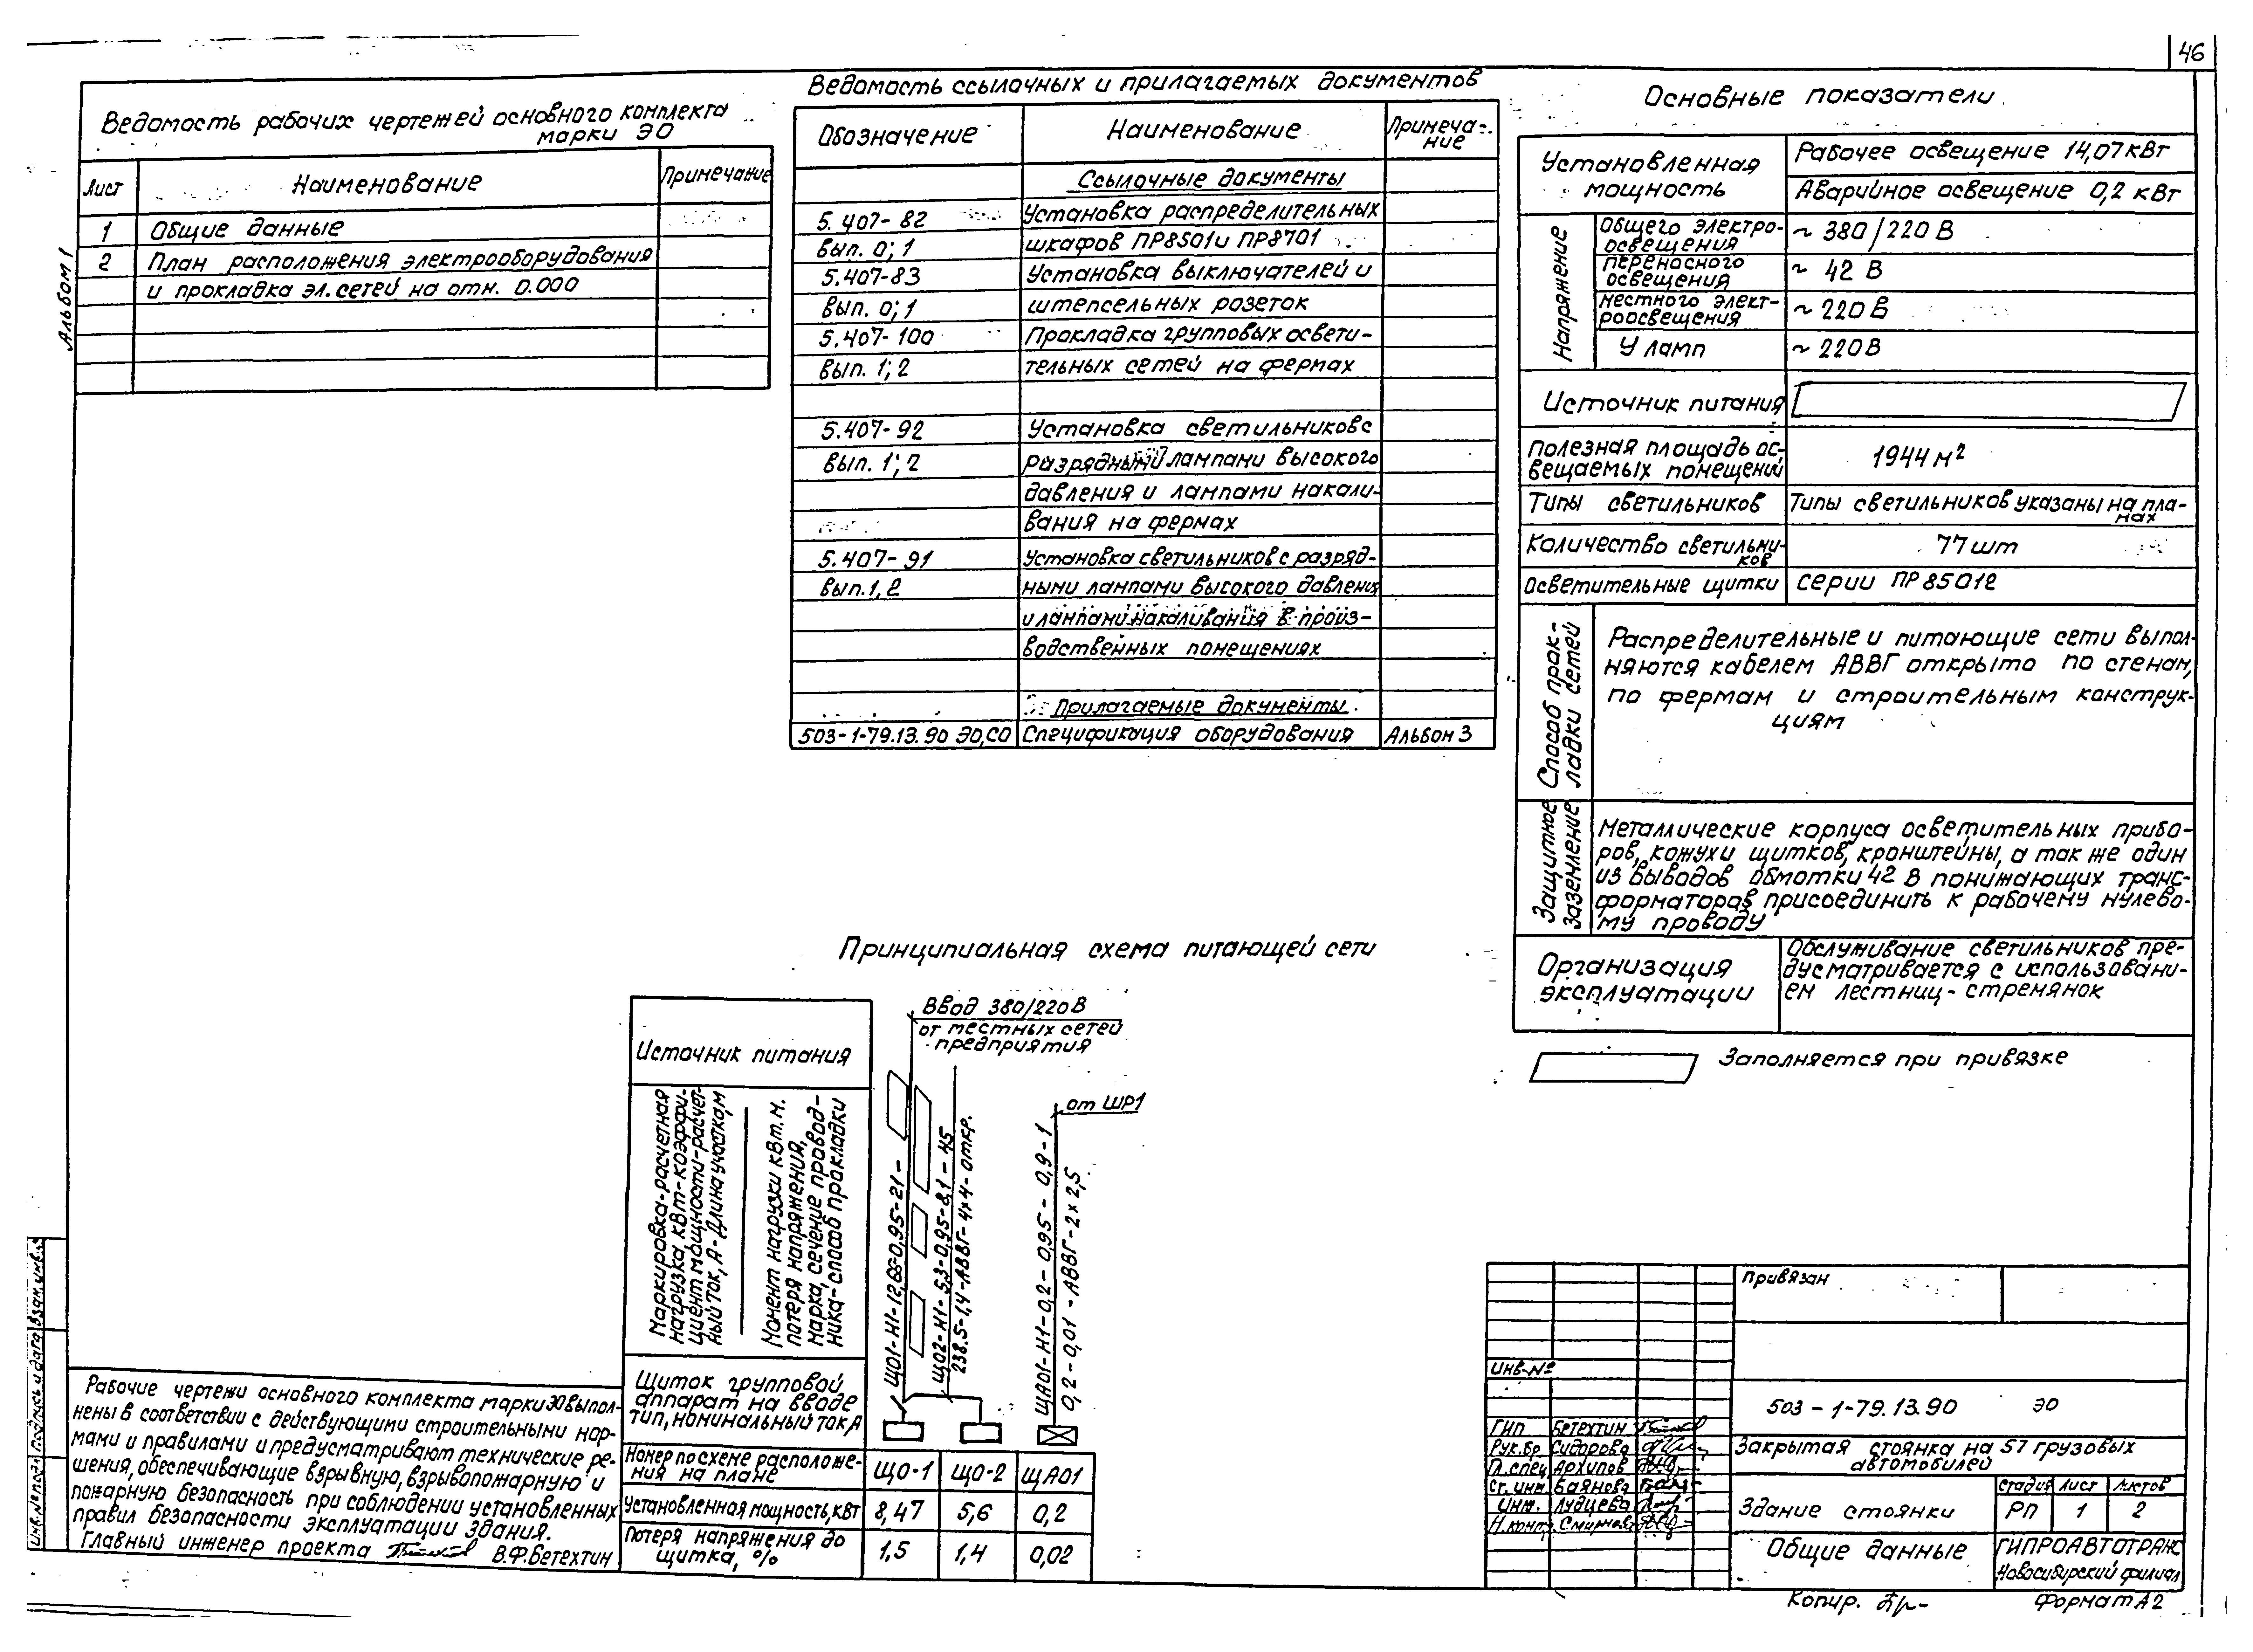 46
Альбом 1
Ведомость рабочих чертежей основного комплекта
марки ЭО
Лист Наименование Примечание
1 Общие данные
2 План расположения электрооборудования
и прокладка эл. сетей на отм. 0.000
Ведомость ссылочных и прилагаемых документов
Обозначение Наименование Примеча-
ние
Ссылочные документы
5.407-82 Установка распределительных
вып. 0; 1 шкафов ПР8501 и ПР8701
5.407-83 Установка выключателей и
вып. 0; 1 штепсельных розеток
5.407-100 Прокладка групповых освети-
вып. 1; 2 тельных сетей на фермах
5.407-92 Установка светильников с
вып. 1; 2 разрядными лампами высокого
давления и лампами накали-
вания на фермах
5.407-91 Установка светильников с разряд-
вып. 1, 2 ными лампами высокого давления
и лампами накаливания в произ-
водственных помещениях
Прилагаемые документы
503-1-79.13.90 ЭО,СО Спецификация оборудования Альбом 3
Основные показатели
Установленная
мощность
Рабочее освещение 14,07 кВт
Аварийное освещение 0,2 кВт
Напряжение
Общего электро-
освещения ~ 380/220 В
переносного
освещения ~ 42 В
местного элект-
роосвещения ~ 220 В
У ламп ~ 220 В
Источник питания
Полезная площадь ос-
вещаемых помещений 1944 м²
Типы светильников Типы светильников указаны на пла-
нах
Количество светильни-
ков 77 шт
Осветительные щитки серии ПР 85012
Способ прок-
ладки сетей
Распределительные и питающие сети выпол-
няются кабелем АВВГ открыто по стенам,
по фермам и строительным конструк-
циям
Защитное
заземление
Металлические корпуса осветительных прибо-
ров, кожухи щитков, кронштейны, а так же один
из выводов обмотки 42 В понижающих транс-
форматоров присоединить к рабочему нулево-
му проводу
Организация
эксплуатации
Обслуживание светильников пре-
дусматривается с использовани-
ем лестниц-стремянок
Заполняется при привязке
Принципиальная схема питающей сети
Источник питания
Ввод 380/220 В
от местных сетей
предприятия
от ШР1
Маркировка-расчетная
нагрузка, кВт-коэффи-
циент мощности-расчет-
ный ток, А-Длина участка, м
Момент нагрузки кВт.м.
потеря напряжения,
марка, сечение провод-
ника-способ прокладки
ЩО2-Н1-5,3-0,95-8,1-45
238.5-1,4-АВВГ-4×4-откр.
ЩАО1-Н1-0,2-0,95-0,9-1
0,2-0,01-АВВГ-2×2,5
Щиток групповой
аппарат на вводе
тип, номинальный ток А
Номер по схеме расположе-
ния на плане ЩО-1 ЩО-2 ЩАО1
Установленная мощность, кВт 8,47 5,6 0,2
Потеря напряжения до
щитка, % 1,5 1,4 0,02
Рабочие чертежи основного комплекта марки ЭО выпол-
нены в соответствии с действующими строительными нор-
мами и правилами и предусматривают технические ре-
шения, обеспечивающие взрывную, взрывопожарную и
пожарную безопасность при соблюдении установленных
правил безопасности эксплуатации здания.
Главный инженер проекта В.Ф.Бетехтин
Инв.№ подл. Подпись и дата Взам.инв.№
Привязан
Инв.№
503-1-79.13.90 ЭО
ГИП Бетехтин
Рук.бр Сидорова
Гл.спец Архипов
Ст.инж. Баянова
Инж. Лудцева
Н.контр. Смирнов
Закрытая стоянка на 57 грузовых
автомобилей
Здание стоянки
Стадия Лист Листов
РП 1 2
Общие данные
ГИПРОАВТОТРАНС
Новосибирский филиал
Копир.
Формат А2